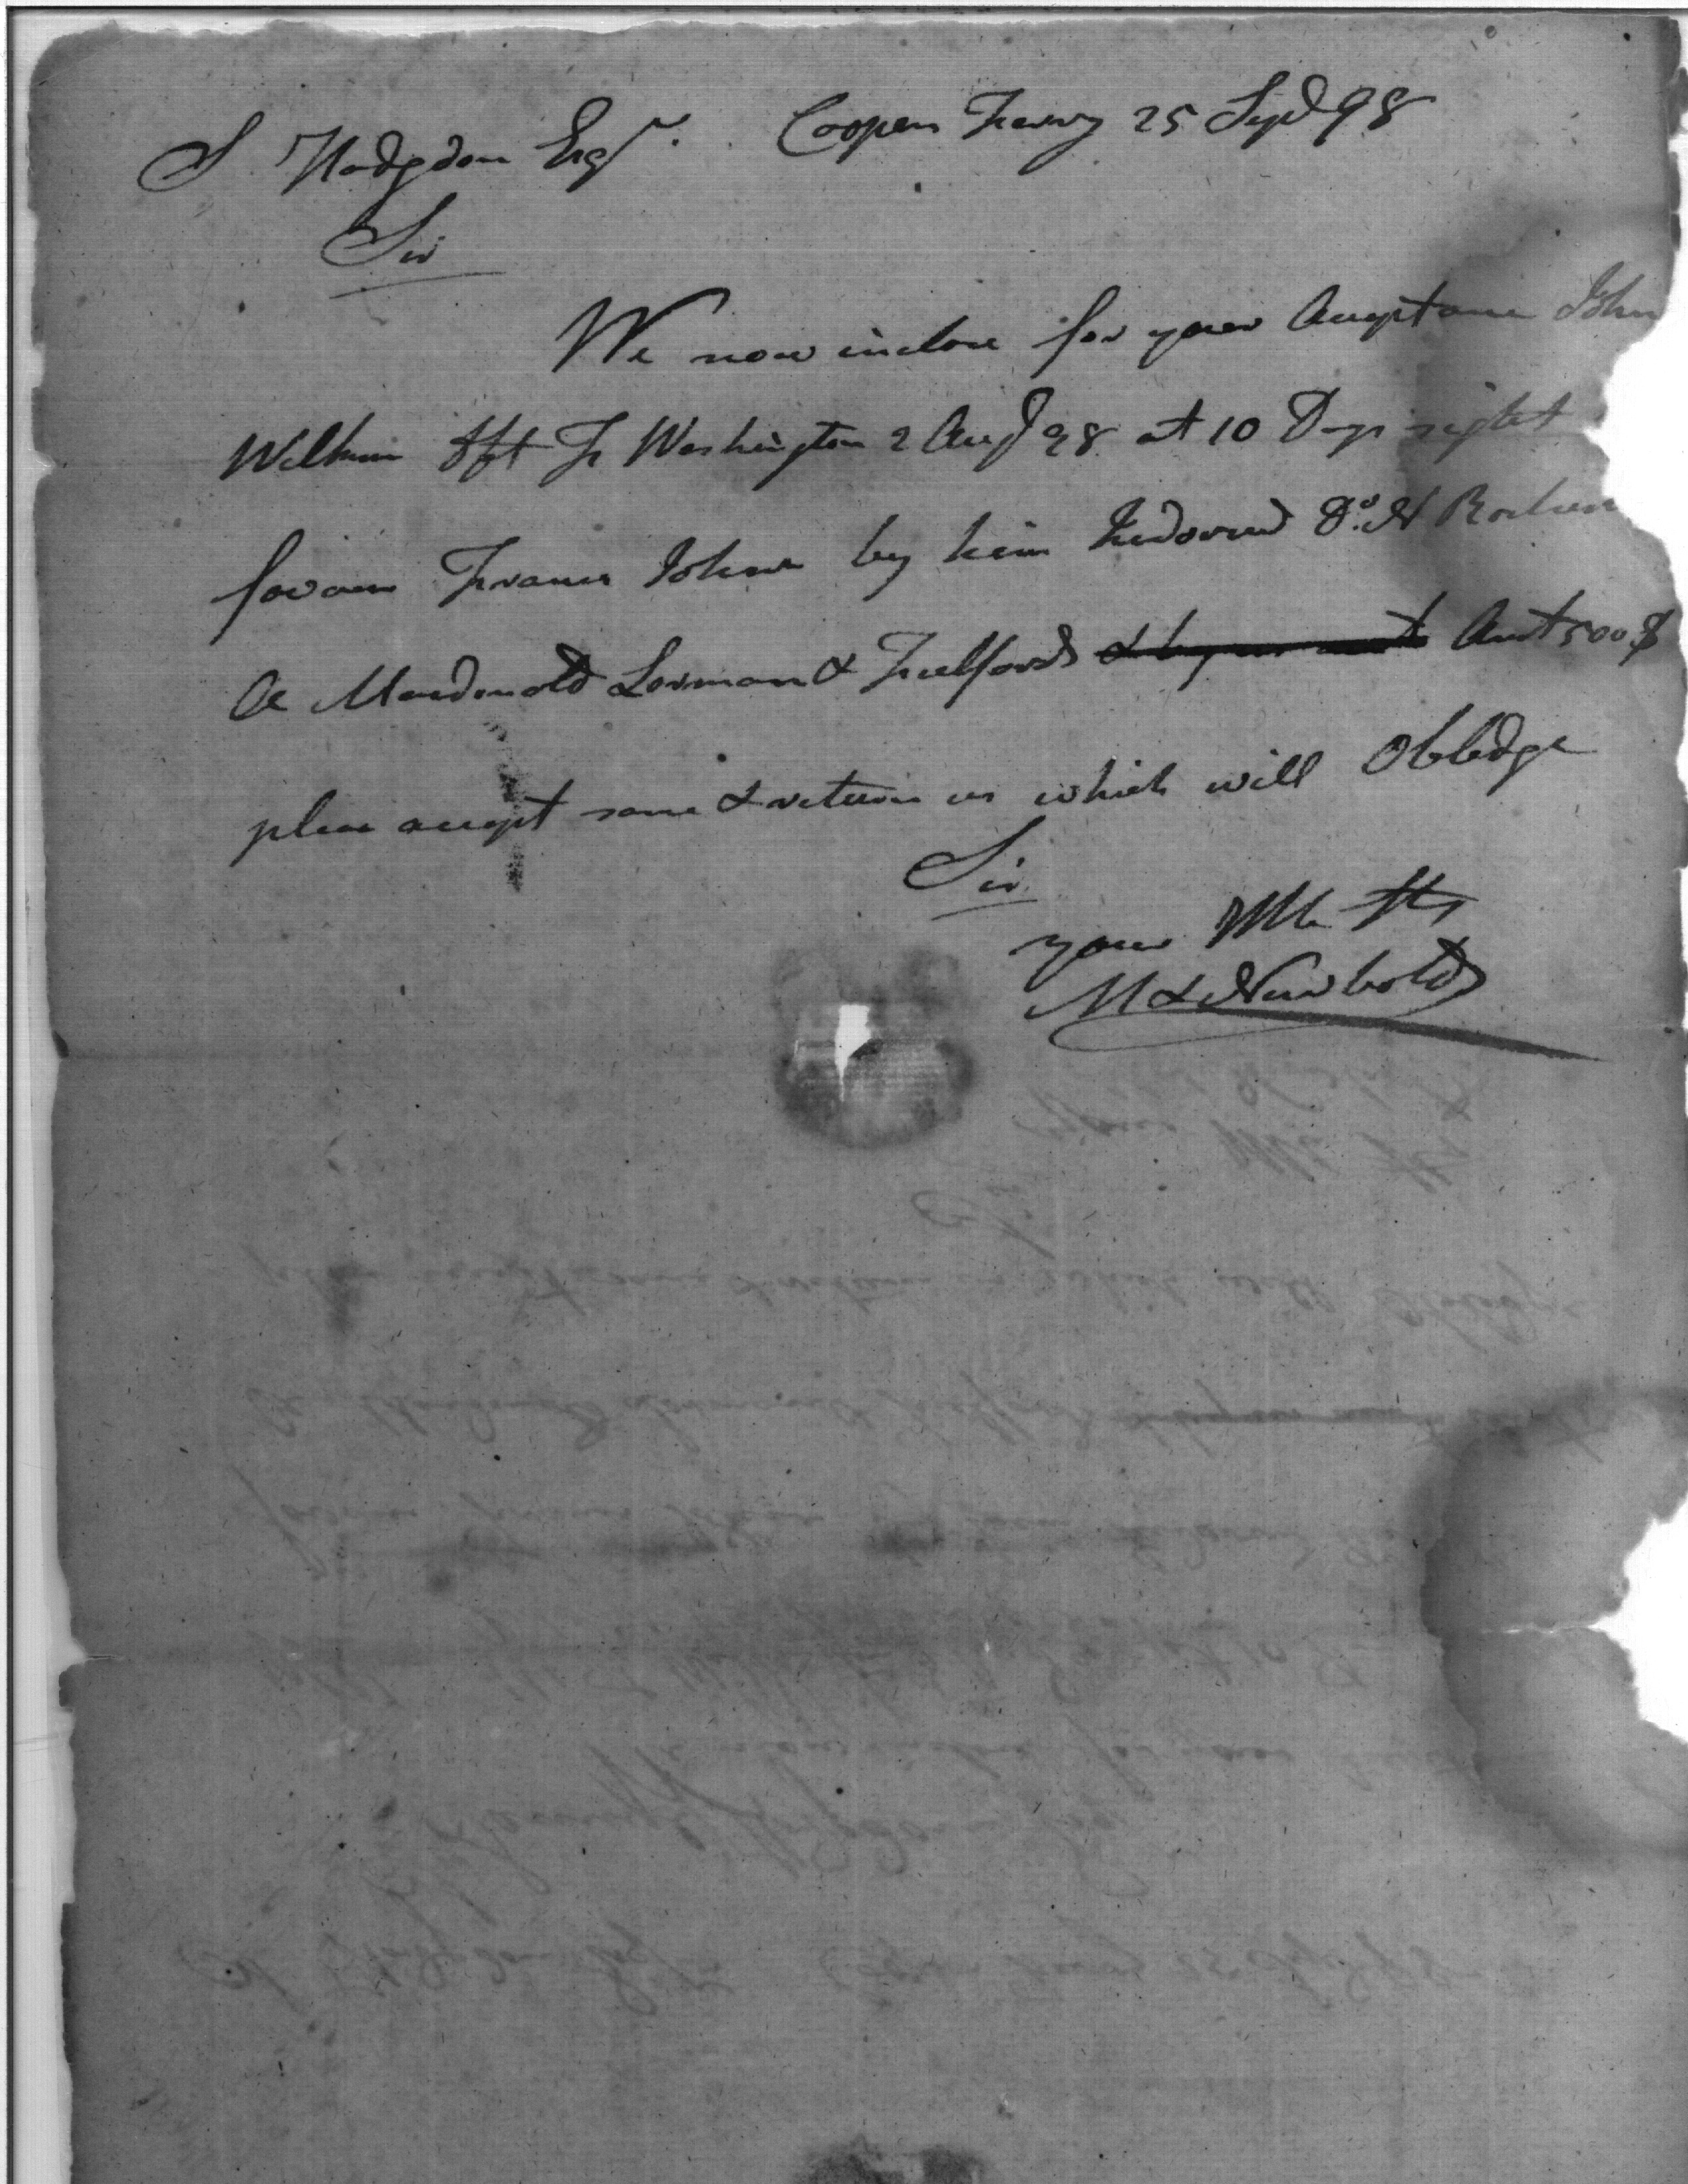 S. Hodgdon Esqr. Coopers Ferry 25 Sept 98
Sir
We now inclose for your Acceptance John
Wilkins dft Ft Washington 2 Augt 98 at 10 Days sight
favour Francis Johns by him Indorsed Do. A
A Macdonald Lorman & Fulford Amt 500$
please accept same & return us which will Obledge
Sir
your Hble Sts
M & Newbold